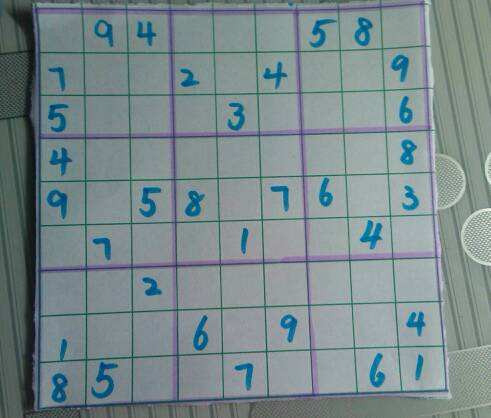 9 4 5 8
7 2 4 9
5 3 6
4 8
9 5 8 7 6 3
7 1 4
2
1 6 9 4
8 5 7 6 1